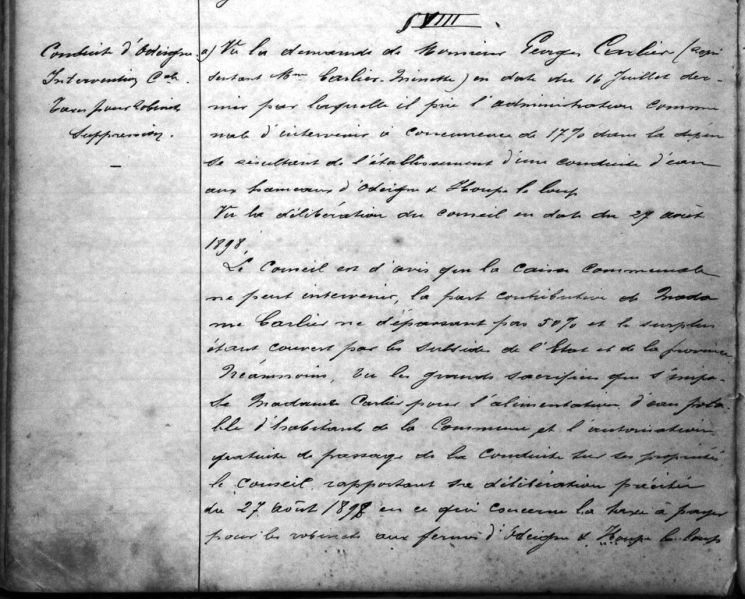 § VIII.
Conduite d'Odeigne.
Intervention Cale.
Taxe pour robinets
Suppression.
a) Vu la demande de Monsieur Georges Carlier (repré
sentant Mme Carlier-Minette) en date du 16 Juillet der-
nier par laquelle il prie l'administration commu
nale d'intervenir à concurrence de 17% dans la dépen
se résultant de l'établissement d'une conduite d'eau
aux hameaux d'Odeigne & Houpe le loup
Vu la délibération du conseil en date du 27 août
1898,
Le Conseil est d'avis que la caisse communale
ne peut intervenir, la part contributive de Mada
me Carlier ne dépassant pas 50% et le surplus
étant couvert par les subsides de l'Etat et de la province
Néanmoins, vu les grands sacrifices que s'impo-
se Madame Carlier pour l'alimentation d'eau pota-
ble d'habitants de la Commune et l'autorisation
gratuite de passage de la conduite sur ses propriétés
le conseil, rapportant sa délibération précitée
du 27 août 1898 en ce qui concerne la taxe à payer
pour les robinets aux fermes d'Odeigne & Houpe le loup